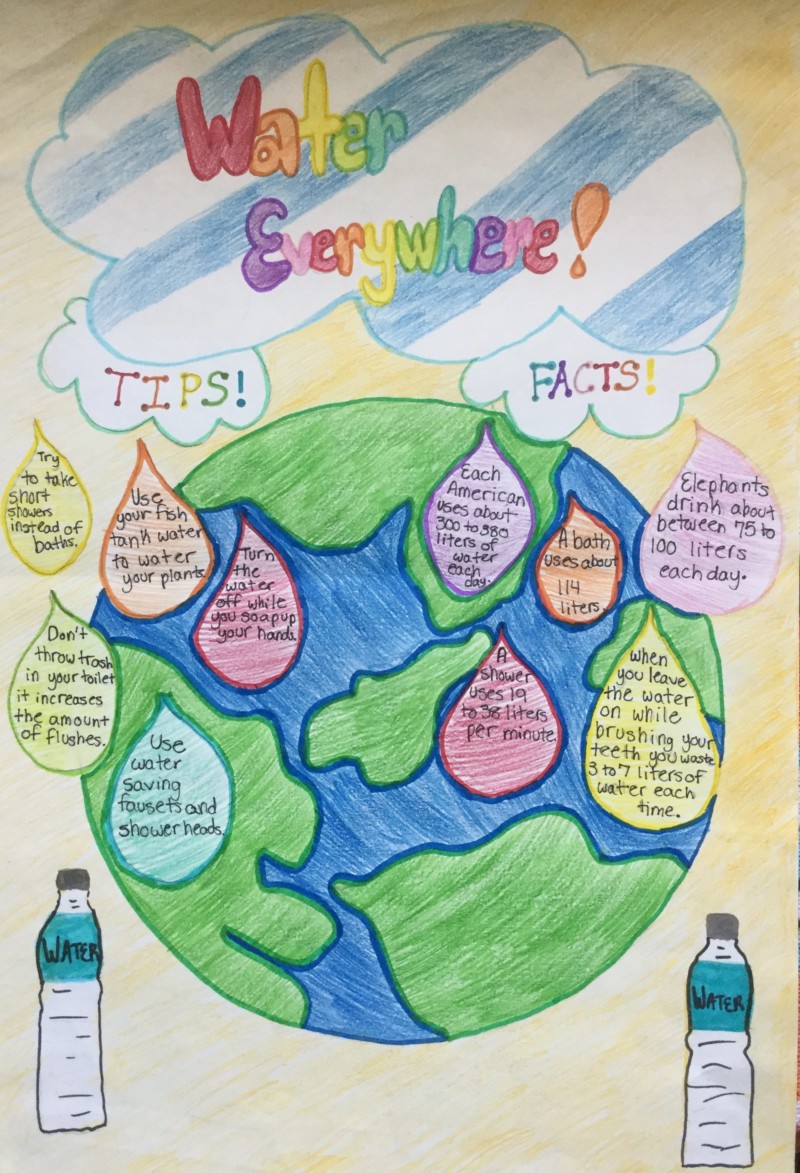 Water
Everywhere!
TIPS!
FACTS!
Try
to take
short
showers
instead of
baths.
Use
your fish
tank water
to water
your plants
Turn
the
water
off while
you soap up
your hands.
Don't
throw trash
in your toilet
it increases
the amount
of flushes.
Use
water
saving
fausets and
shower heads.
Each
American
uses about
300 to 380
liters of
water
each
day.
A bath
uses about
114
liters.
Elephants
drink about
between 75 to
100 liters
each day.
A
shower
uses 19
to 38 liters
per minute
when
you leave
the water
on while
brushing your
teeth you waste
3 to 7 liters of
water each
time.
WATER
WATER